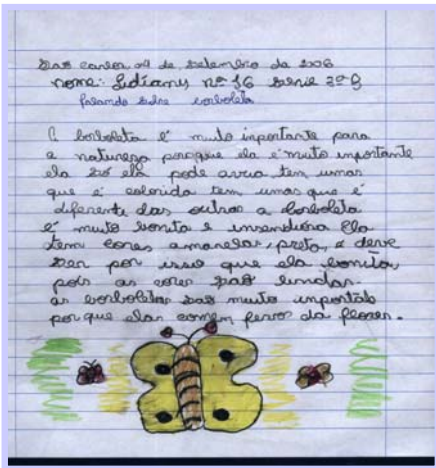 São carlos 04 de setembro da 2006
nome: Lidiany nº 16 serie 3ª B
falando sobre borboleta
A borboleta é muto inportante para
a natureza porque ela é muto inportante
ela só ela pode avua tem umas
que é colorida tem umas que é
diferente das outras a borboleta
é muito bonita e Ela
tem cores amarelas, preto, e deve
ser por isso que ela bonita,
pois as cores são lindas.
as borboletas são muito
por que elas comem da flores.